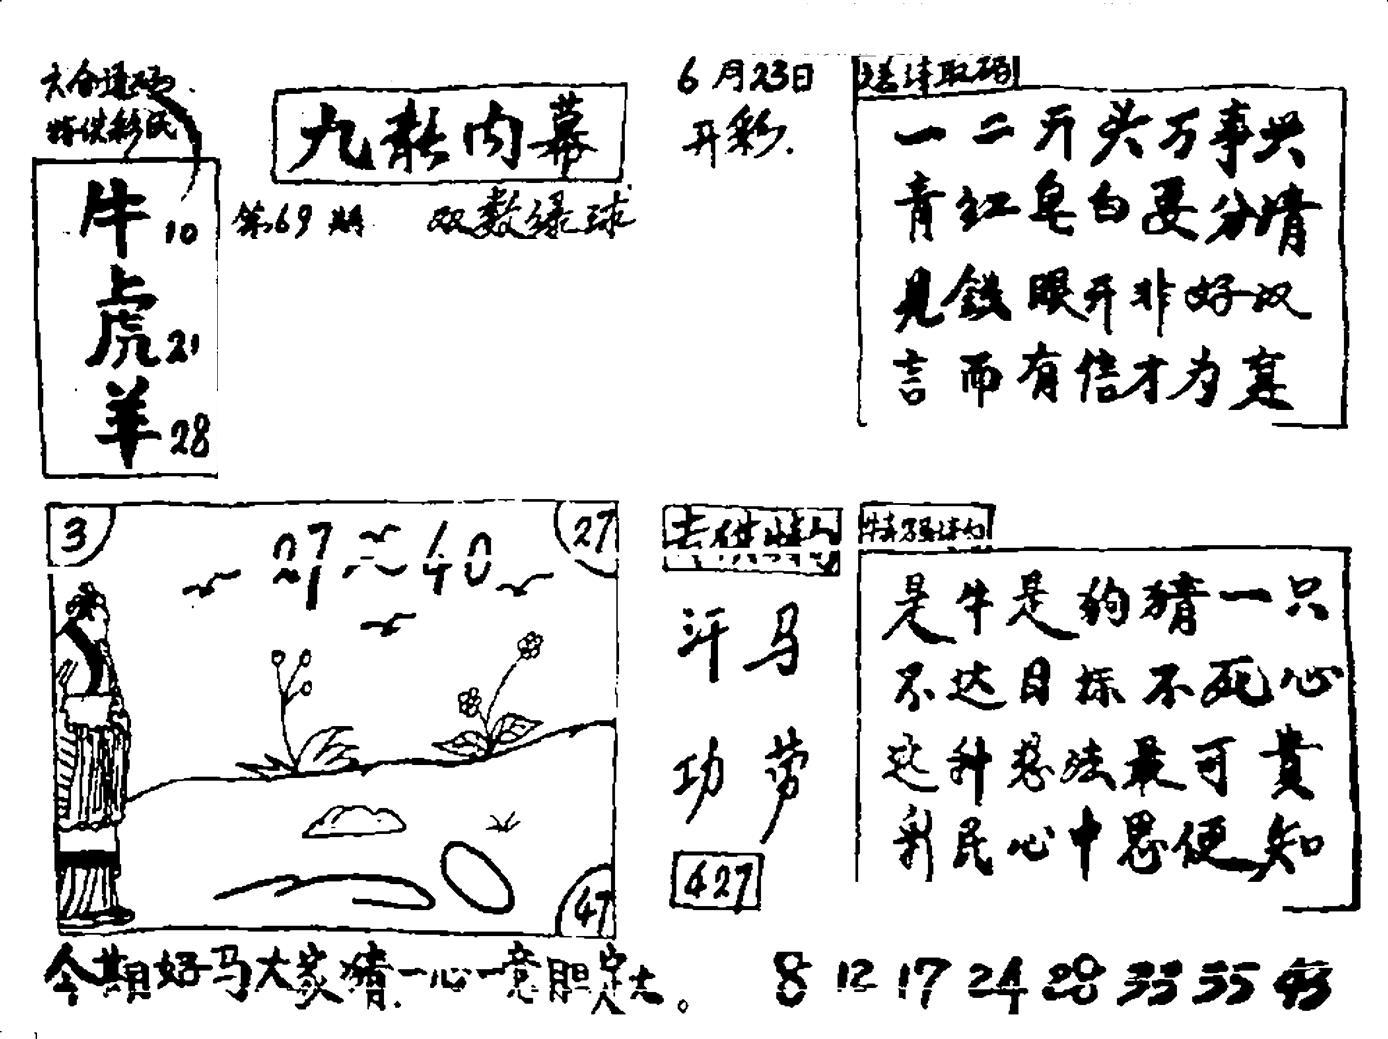 六合透码
特供彩民
牛 10
虎 21
羊 28
九龙内幕
第69期 双数绿球
6月23日
开彩.
一二开头万事兴
青红皂白要分清
见钱眼开非好汉
言而有信才为真
3 27 40 27
47
汗马
功劳
427
是牛是狗猜一只
不达目标不死心
这种想法最可贵
彩民心中思便知
今期好马大家猜.一心一意胆大。
8 12 17 24 28 33 35 43